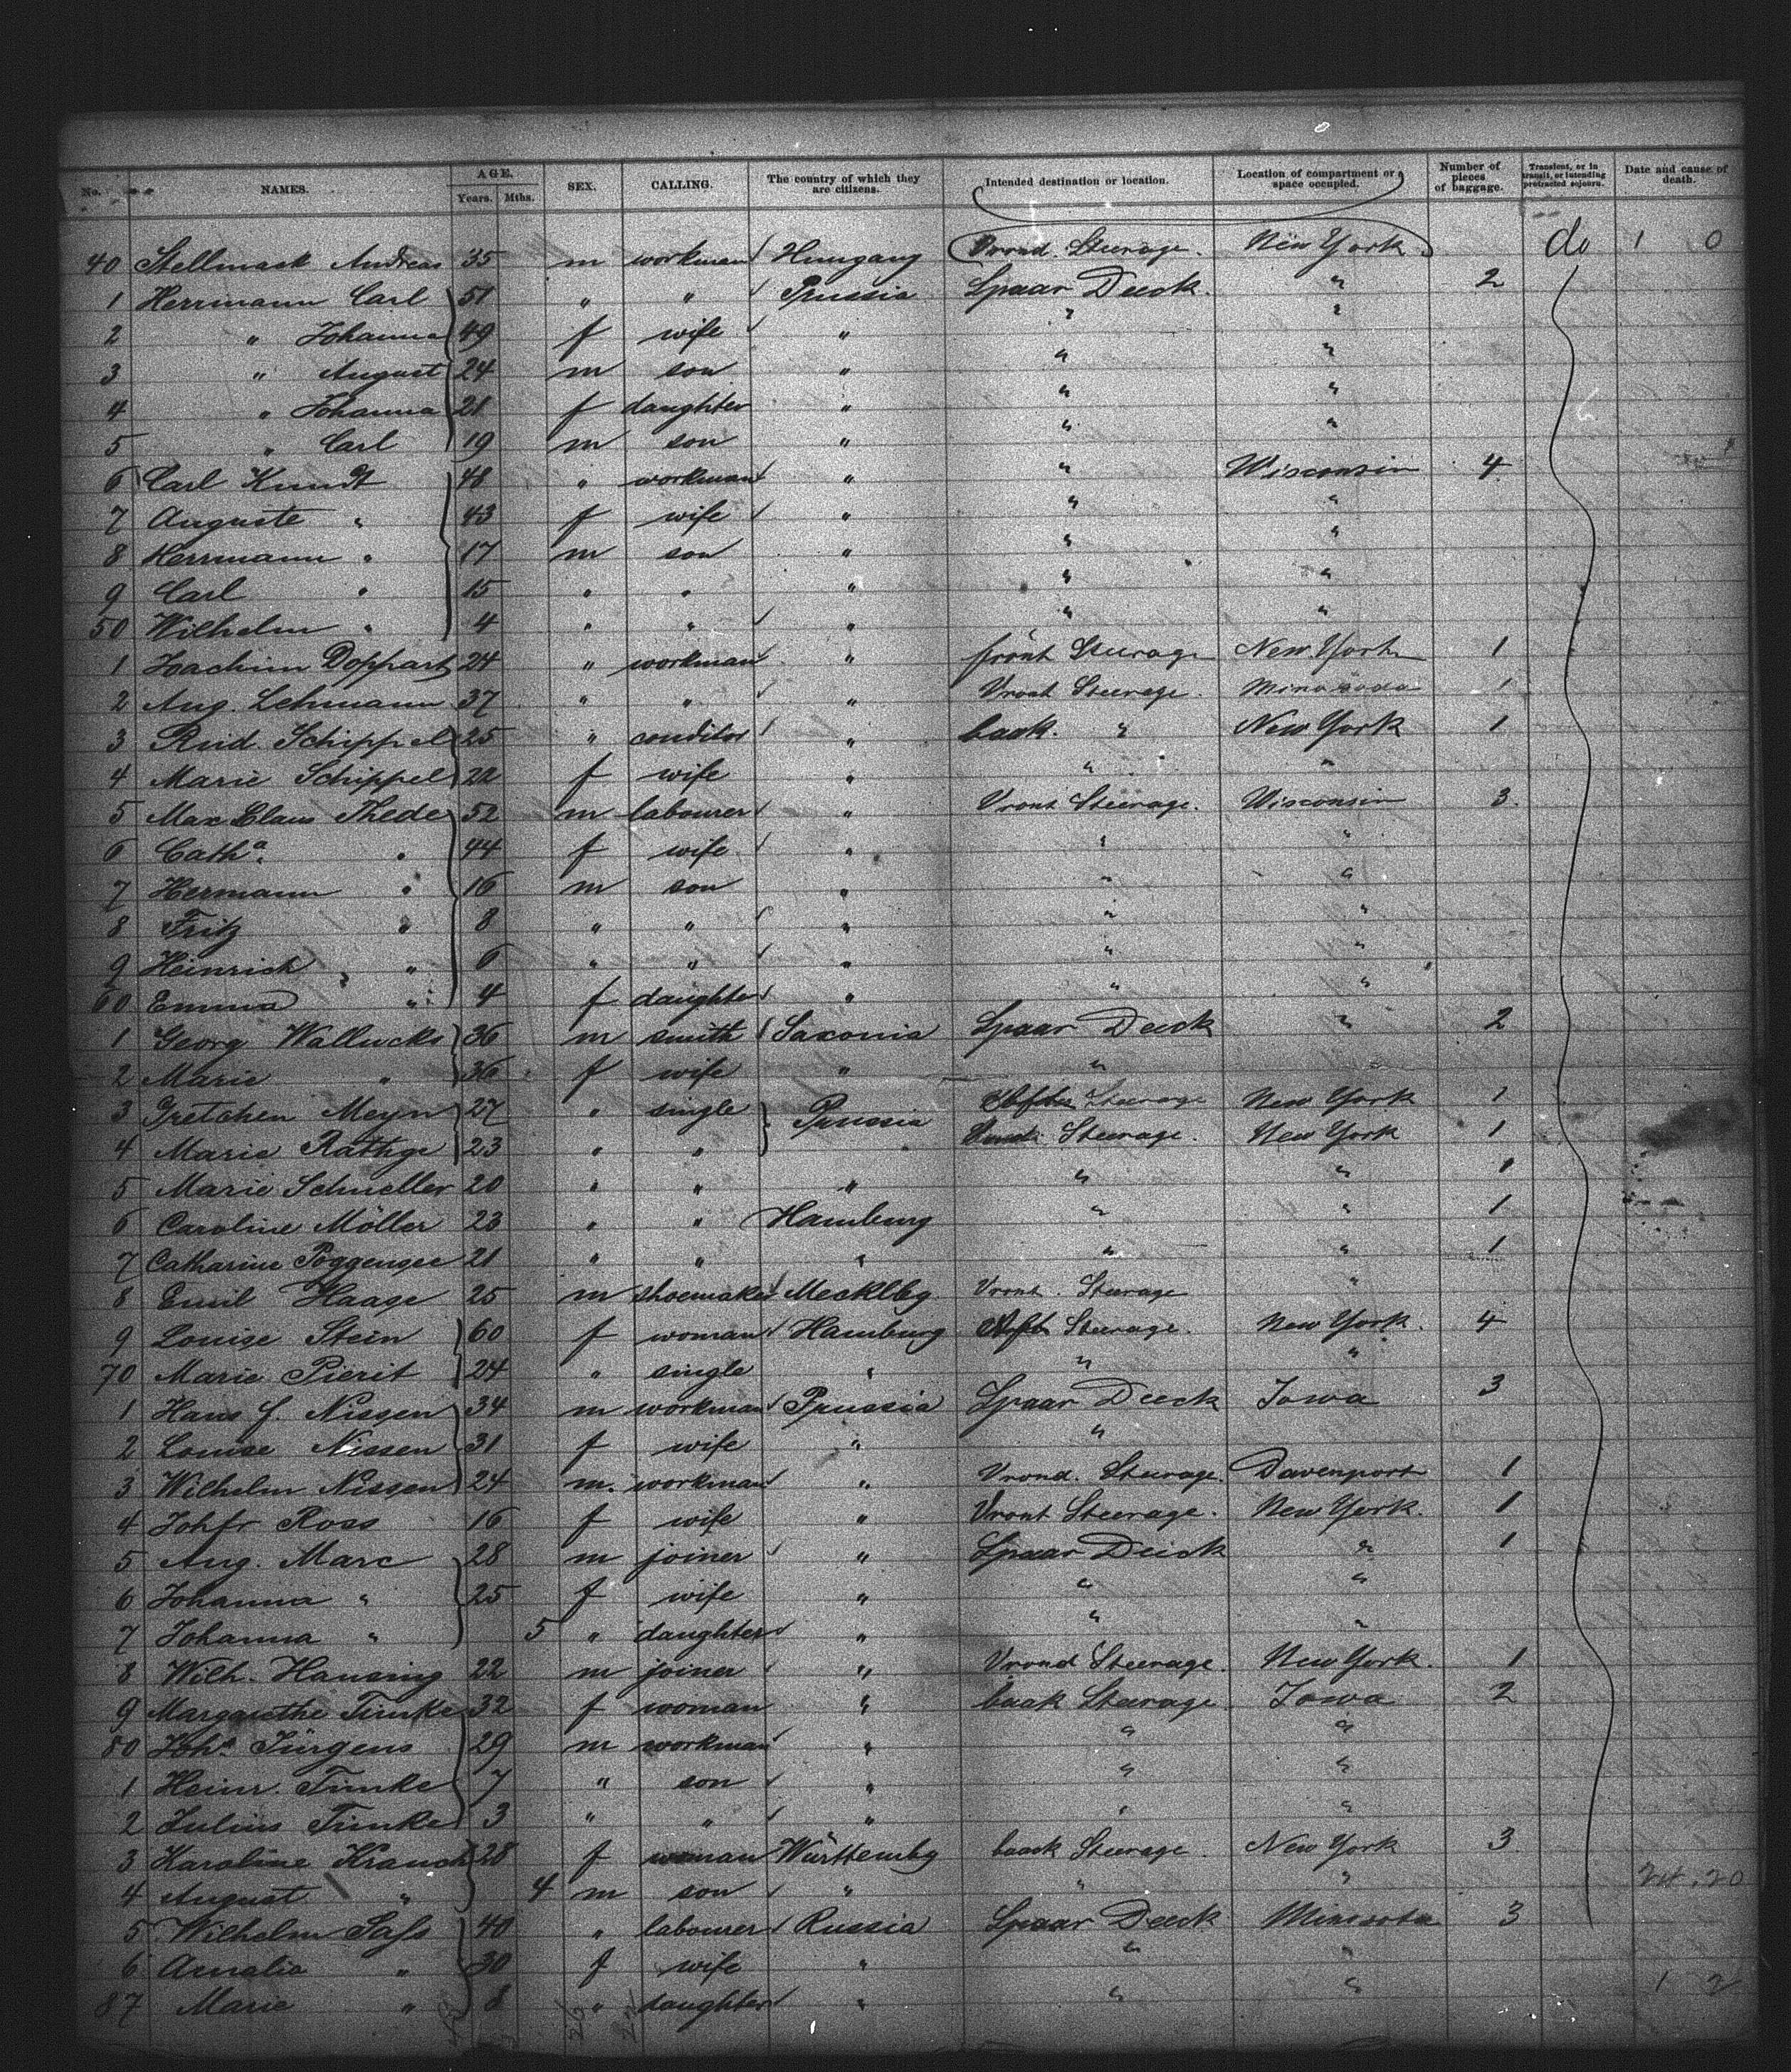 No. NAMES. AGE. Years. Mths. SEX. CALLING. The country of which they are citizens. Intended destination or location. Location of compartment or space occupied. Number of pieces of baggage. Transient, or in transit, or intending protracted sojourn. Date and cause of death.
40 Stellmack Andreas 35 m workman Hungary Vrond. Steerage. New York do 1 0
1 Herrmann Carl 51 " " Prussia Spaar Deeck. " 2
2 " Johanna 49 f wife " " "
3 " August 24 m son " " "
4 " Johanna 21 f daughter " " "
5 " Carl 19 m son " " "
6 Carl Kundt 48 " workman " " Wisconsin 4
7 Auguste " 43 f wife " " "
8 Herrmann " 17 m son " " "
9 Carl " 15 " " " " "
50 Wilhelm " 4 " " " " "
1 Joachim Doppart 24 " workman " front Steerage New York 1
2 Aug. Lehmann 37 " " " Vront Steerage. 1
3 Rud. Schippel 25 " conditor " baak. " New York 1
4 Marie Schippel 22 f wife " " "
5 Max Claus Thede 52 m labourer " Vront Steerage. Wisconsin 3.
6 Cath.a " 44 f wife " " "
7 Hermann " 16 m son " " "
8 Fritz " 8 " " " " "
9 Heinrich " 6 " " " " "
60 Emma " 4 f daughter " " "
1 Georg Wallucks 36 m smith Saxonia Spaar Deeck " 2
2 Marie " 36 f wife " "
3 Gretchen Meyn 27 " single Prussia Steerage New York 1
4 Marie Rathge 23 " " Steerage. New York 1
5 Marie Schneller 20 " " " " " 1
6 Caroline Möller 23 " " Hamburg " " 1
7 Catharine Poggensee 21 " " " " " 1
8 Emil Haase 25 m shoemaker Mecklbg. Vront. Steerage "
9 Louise Stein 60 f woman Hamburg Aft Steerage. New York. 4
70 Marie Pierit 24 " single " " "
1 Hans J. Nissen 34 m workman Prussia Spaar Deeck Iowa 3
2 Louise Nissen 31 f wife " "
3 Wilhelm Nissen 24 m. workman " Vrond. Steerage. Davenport 1
4 Johfr Ross 16 f wife " Vront Steerage. New York. 1
5 Aug. Marc 28 m joiner " Spaar Deeck " 1
6 Johanna " 25 f wife " " "
7 Johanna " 5 " daughter " " "
8 Wilh. Hansing 22 m joiner " Vrond Steerage. New York. 1
9 Margarethe Timke 32 f woman " baak Steerage Iowa 2
80 Joh.a Jürgens 29 m workman " " "
1 Heinr. Timke 7 " son " " "
2 Julius Timke 3 " " " " "
3 Karoline Krauch 28 f woman Württembg baak Steerage. New York 3
4 August " 4 m son " " "
5 Wilhelm Sass 40 " labourer Russia Spaar Deeck Minesota 3
6 Amalia " 30 f wife " " "
87 Marie " 8 " daughter " " " 1 2